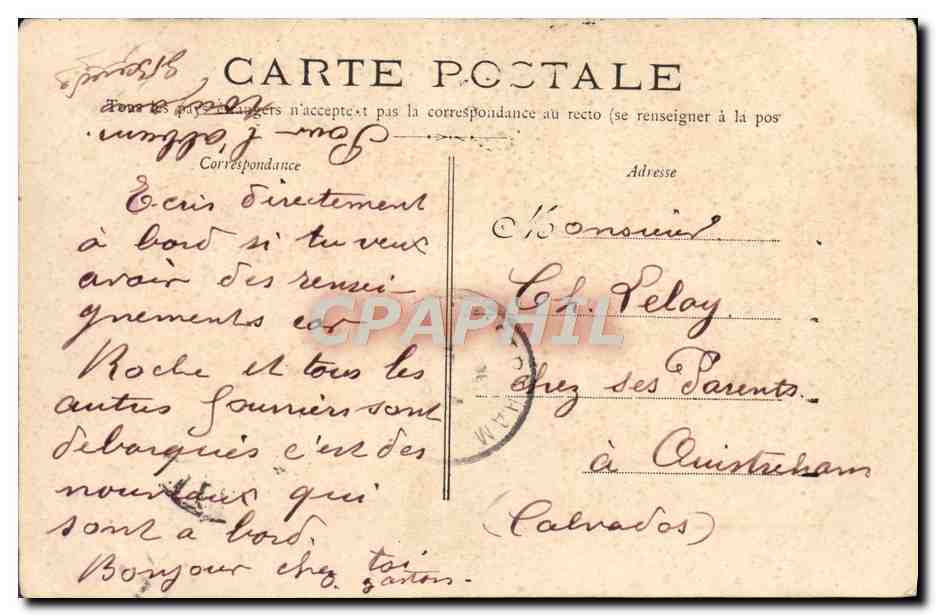 CARTE POSTALE
Tous les pays étrangers n'acceptent pas la correspondance au recto (se renseigner à la pos
Pour l'album.
Correspondance
Ecris directement
à bord si tu veux
avoir des rensei-
gnements car
Roche et tous les
autres fourriers sont
debarqués c'est des
nouveaux qui
sont a bord.
Bonjour chez toi
gaston.
Adresse
Monsieur
Ch. Leloy
chez ses Parents.
à Ouistreham
(Calvados)
HAM
CPAPHIL